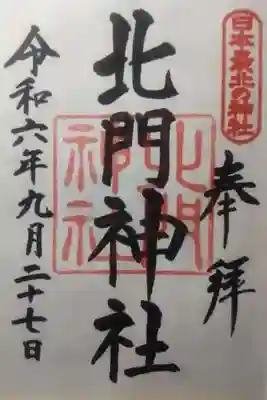 日本最北の神社
奉拝
北門神社
北門神社
令和六年九月二十七日